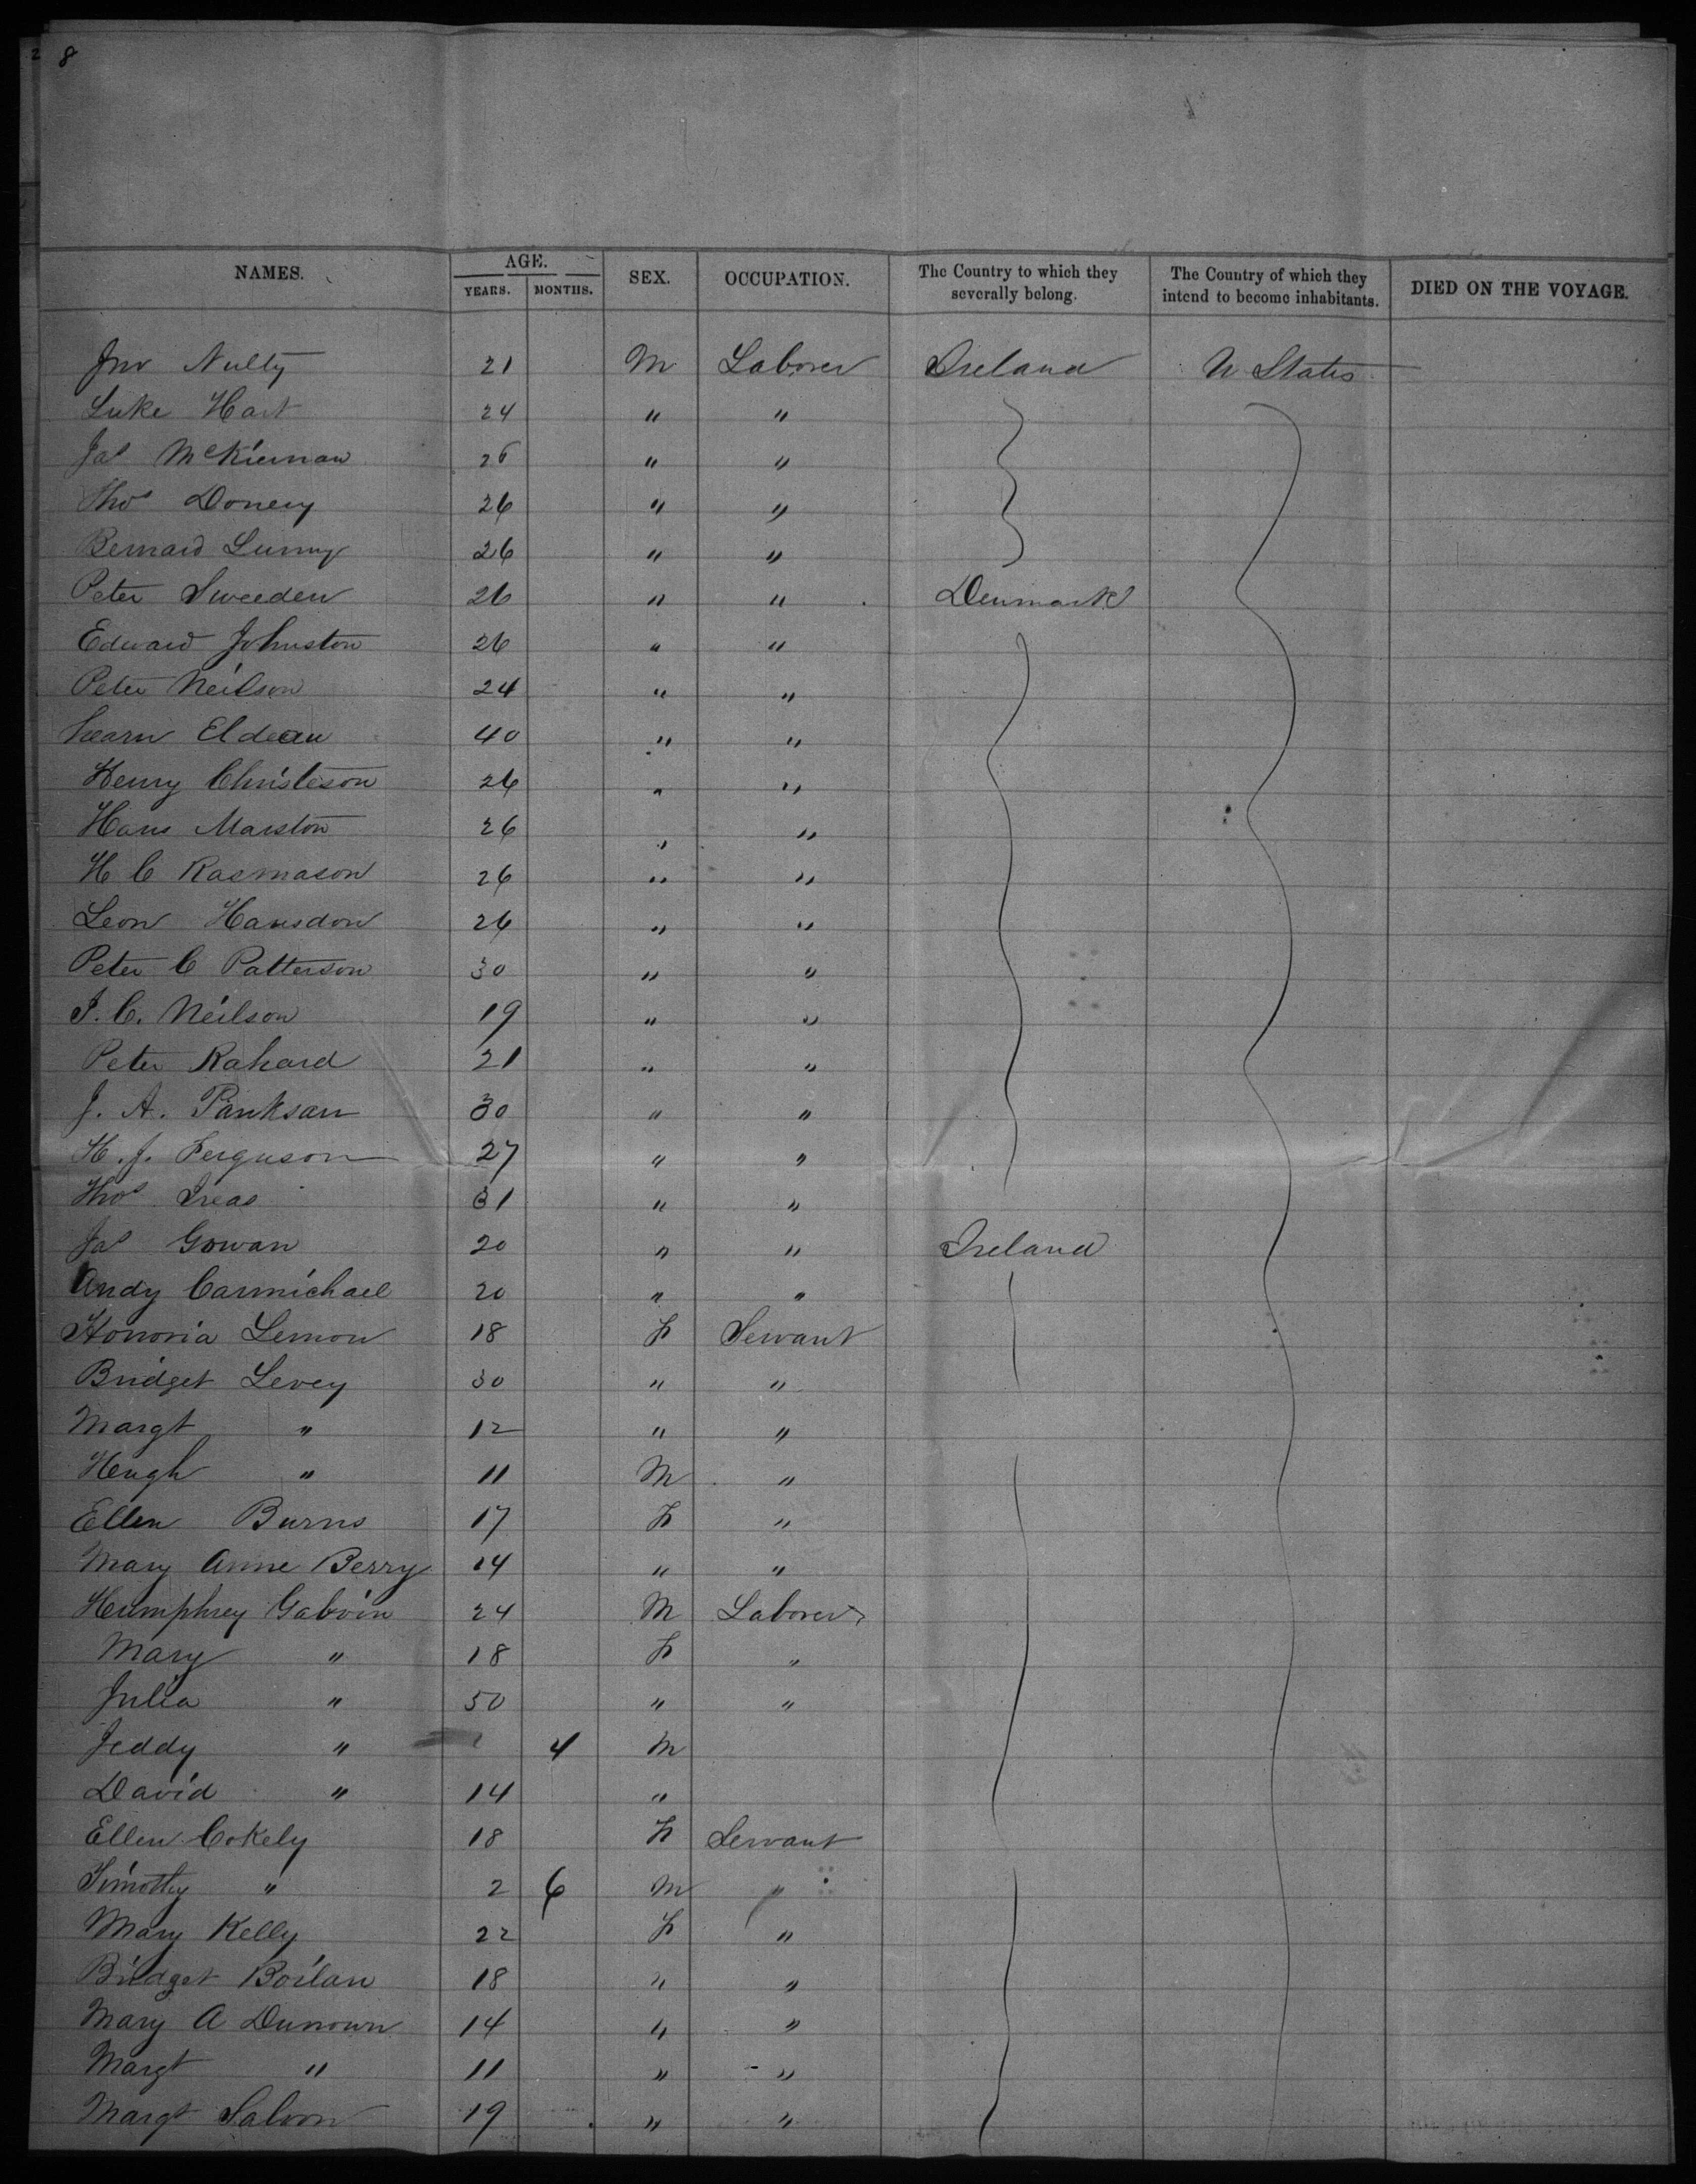 8
NAMES. AGE. SEX. OCCUPATION. The Country to which they severally belong. The Country of which they intend to become inhabitants. DIED ON THE VOYAGE.
YEARS. MONTHS.
Jno Nulty 21 M Laborer Ireland U States
Luke Hart 24 " "
Jas McKiernan 26 " "
Thos Donery 26 " "
Bernard Lunny 26 " "
Peter Sweeden 26 " " Denmark
Edward Johnston 26 " "
Peter Neilson 24 " "
Eldeau 40 " "
Henry Christeson 26 " "
Hans Marston 26 " "
H C Rasmason 26 " "
Leon Hansdon 26 " "
Peter C Patterson 30 " "
J. C. Neilson 19 " "
Peter Rahard 21 " "
J. A. Panksan 30 " "
H. J. Ferguson 27 " "
Thos 31 " "
Jas Gowan 20 " " Ireland
Andy Carmichael 20 " "
Honoria Lemon 18 F Servant
Bridget Levey 30 " "
Margt " 12 " "
Heugh " 11 M "
Ellen Burns 17 F "
Mary Anne Berry 14 " "
Humphrey Galvin 24 M Laborer
Mary " 18 F "
Julia " 50 " "
Jeddy " 4 M
David " 14 "
Ellen Cokely 18 F Servant
Timothy " 2 6 M "
Mary Kelly 22 F "
Bridget Boilan 18 " "
Mary A Dunown 14 " "
Margt " 11 " "
Margt Salvon 19 " "